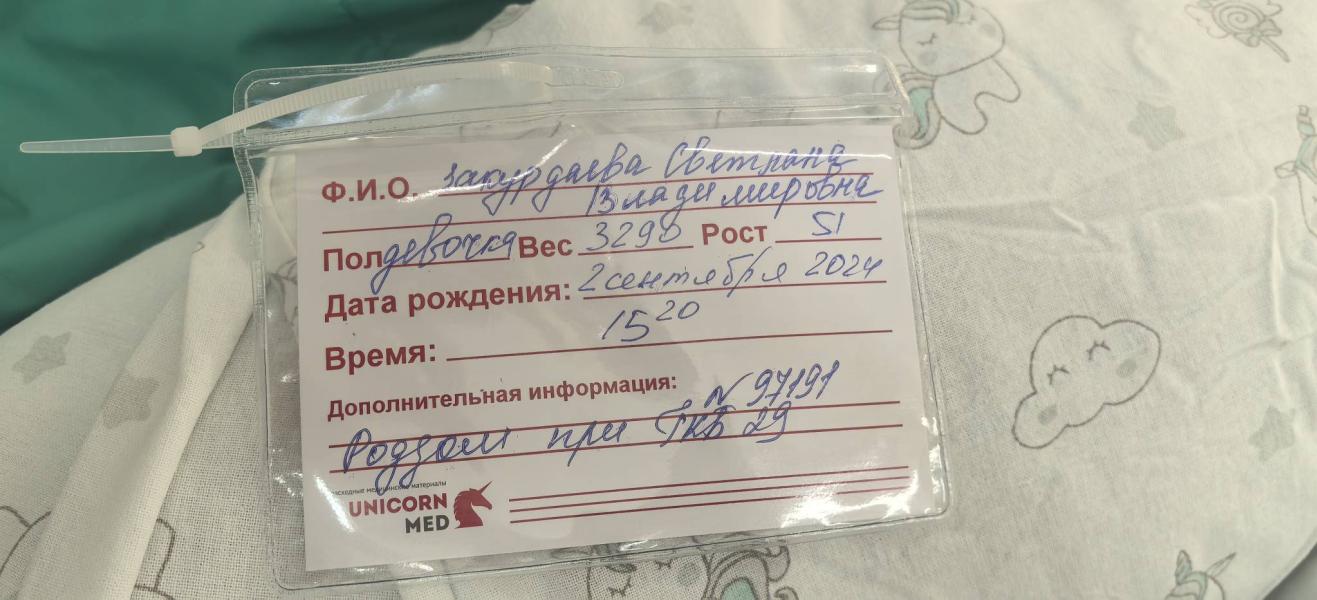 Ф.И.О. Закурдаева Светлана
Владимировна
Пол девочка Вес 3290 Рост 51
Дата рождения: 2 сентября 2024
Время: 15 20
Дополнительная информация:
N 97191
Роддом при ГКБ 29
расходные медицинские материалы
UNICORN
MED